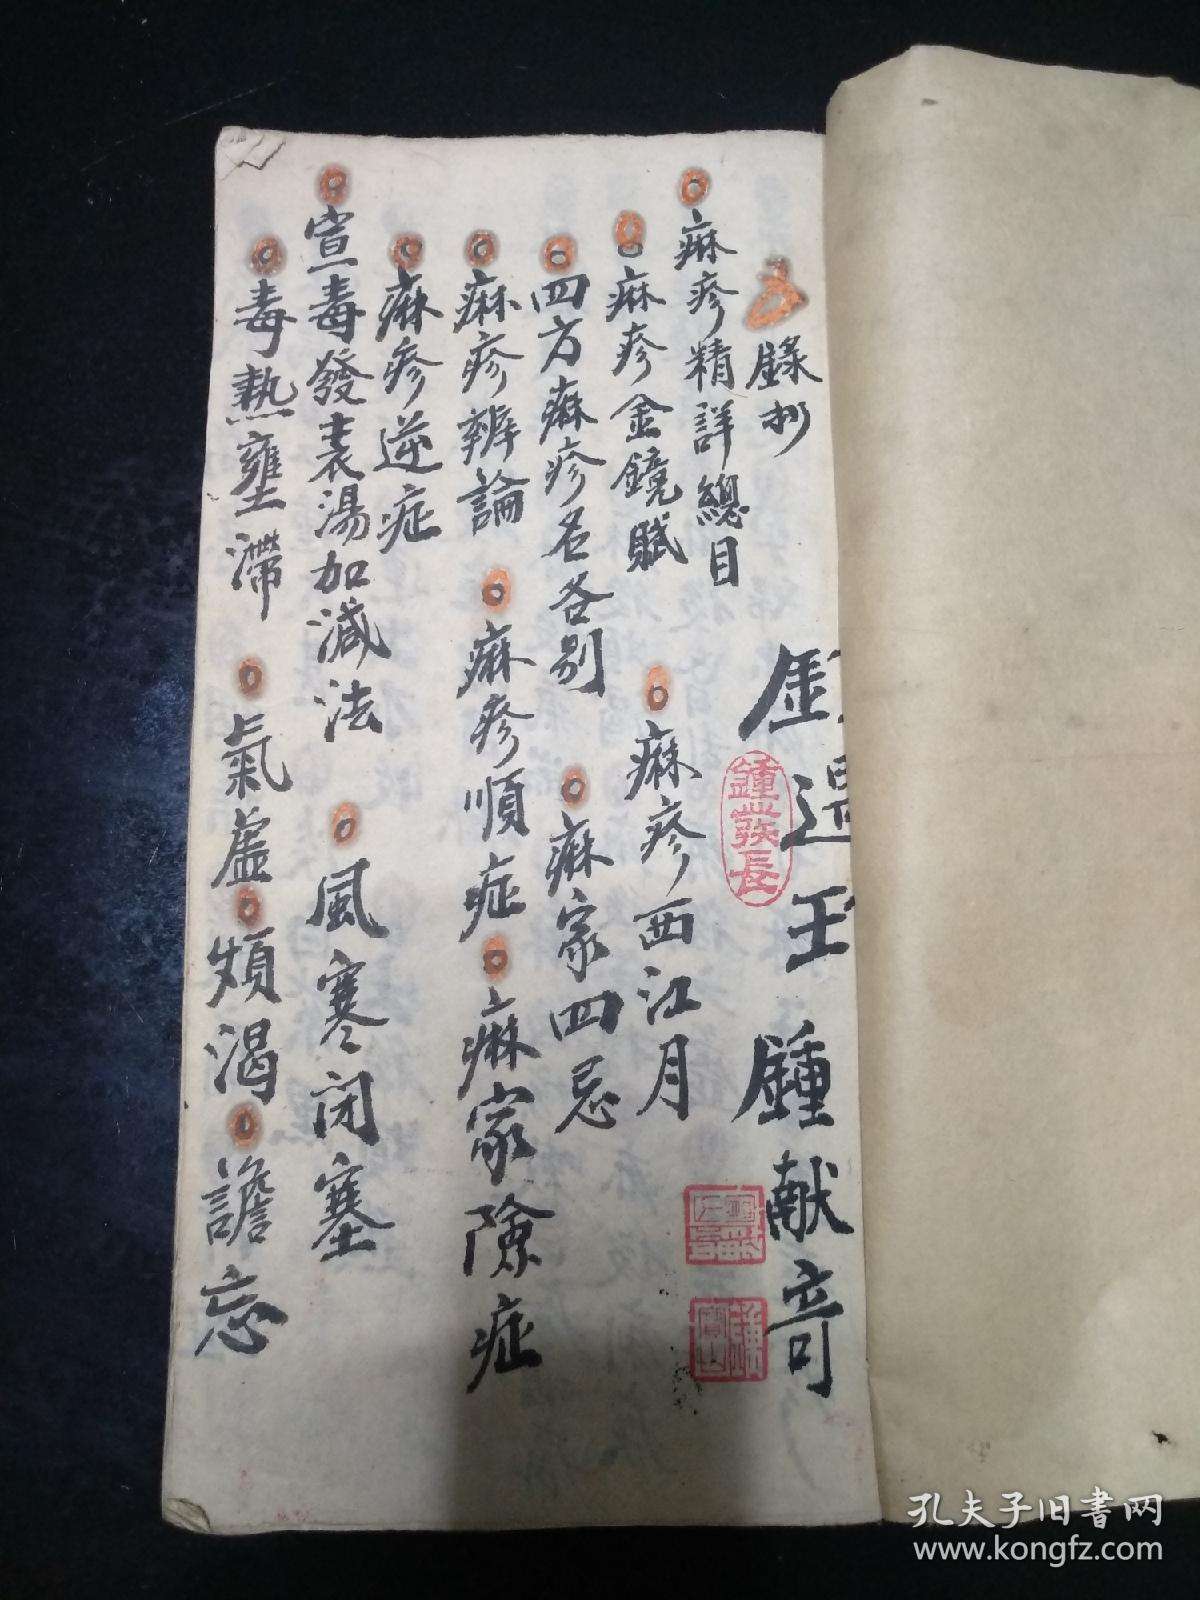 鍾献奇
錄抄
麻疹精詳總目
麻疹金鏡賦 麻疹西江月
四方麻疹名各别 麻家四忌
麻疹辨論 麻疹順症 麻家險症
麻疹逆症
宣毒發表湯加減法 風寒闭塞
毒熱壅滯 氣虛 煩渴 譫忘
鍾 長
孔夫子旧书网
www.kongfz.com